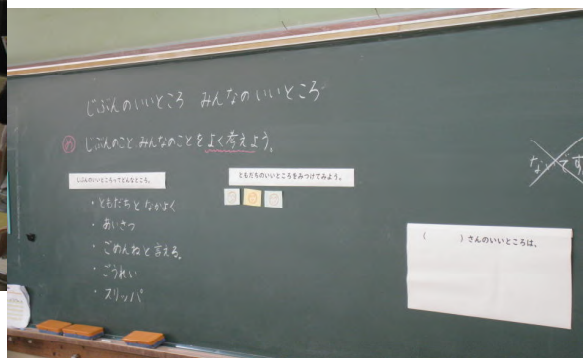 じぶんのいいところ みんなのいいところ
め じぶんのこと みんなのことをよく考えよう。
じぶんのいいところってどんなところ。
・ともだちとなかよく
・あいさつ
・ごめんねと言える。
・ごうれい
・スリッパ
ともだちのいいところをみつけてみよう。
( )さんのいいところは、
ないです